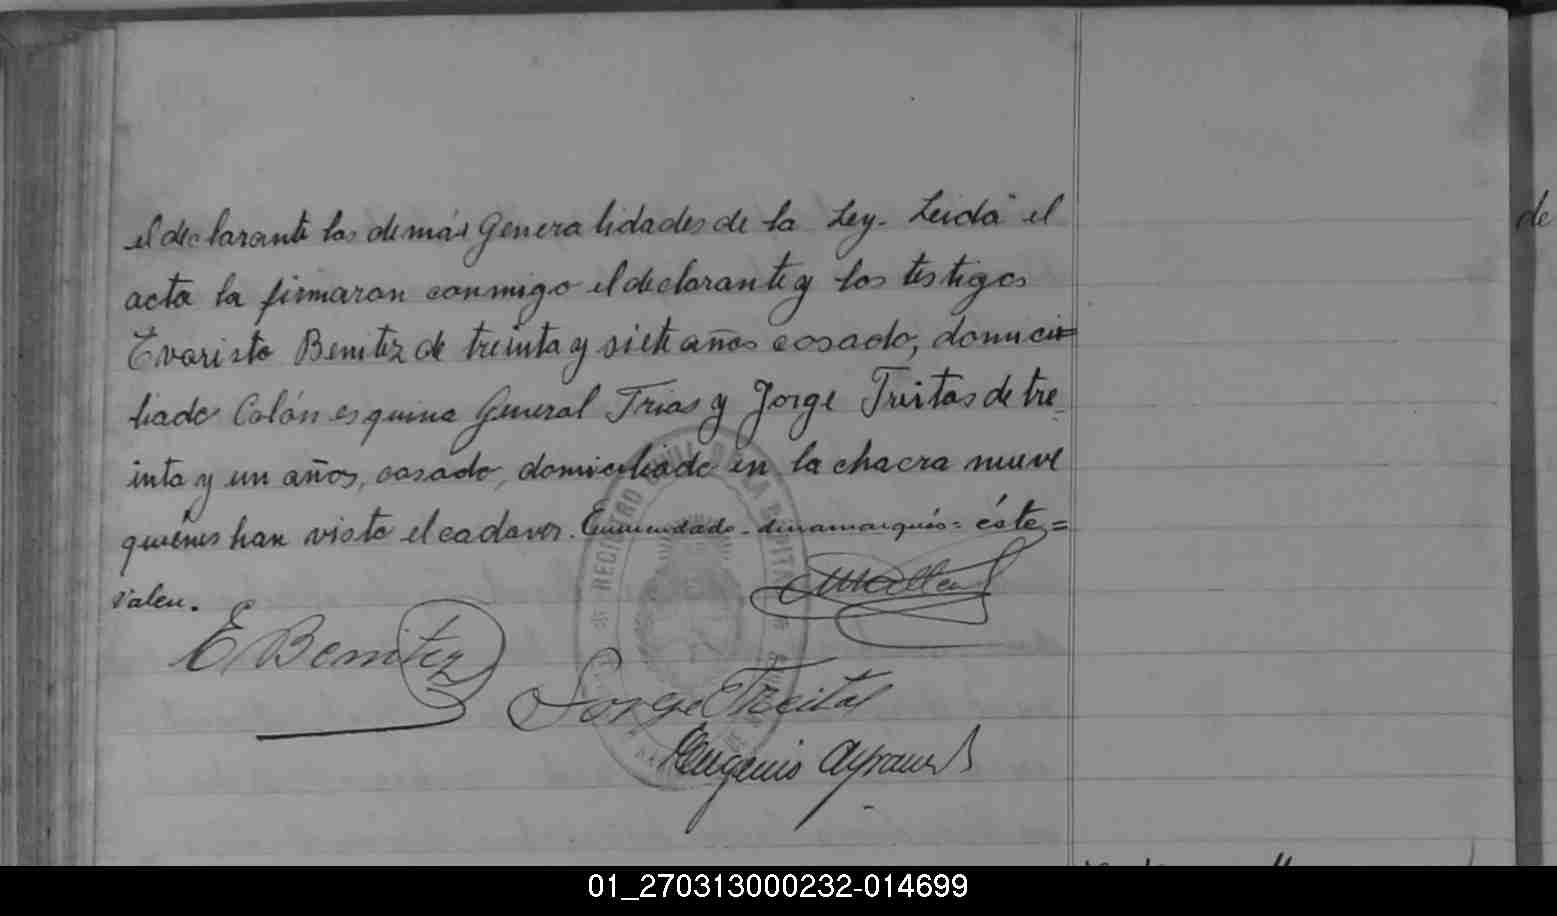 el declarante las demás Generalidades de la Ley. Leida el
acta la firmaron conmigo el declarante y los testigos
Evaristo Benitez de treinta y siete años casado, domici=
liado Colón esquina General Trias y Jorge Treitas de tre_
inta y un años, casado, domiciliado en la chacra nueve
quiénes han visto el cadaver. Enmendado - dinamarqués = éste =
valen.
E Benitez
Jorge Treitas
Eugenio
REGISTRO CIVIL
de
01_270313000232-014699